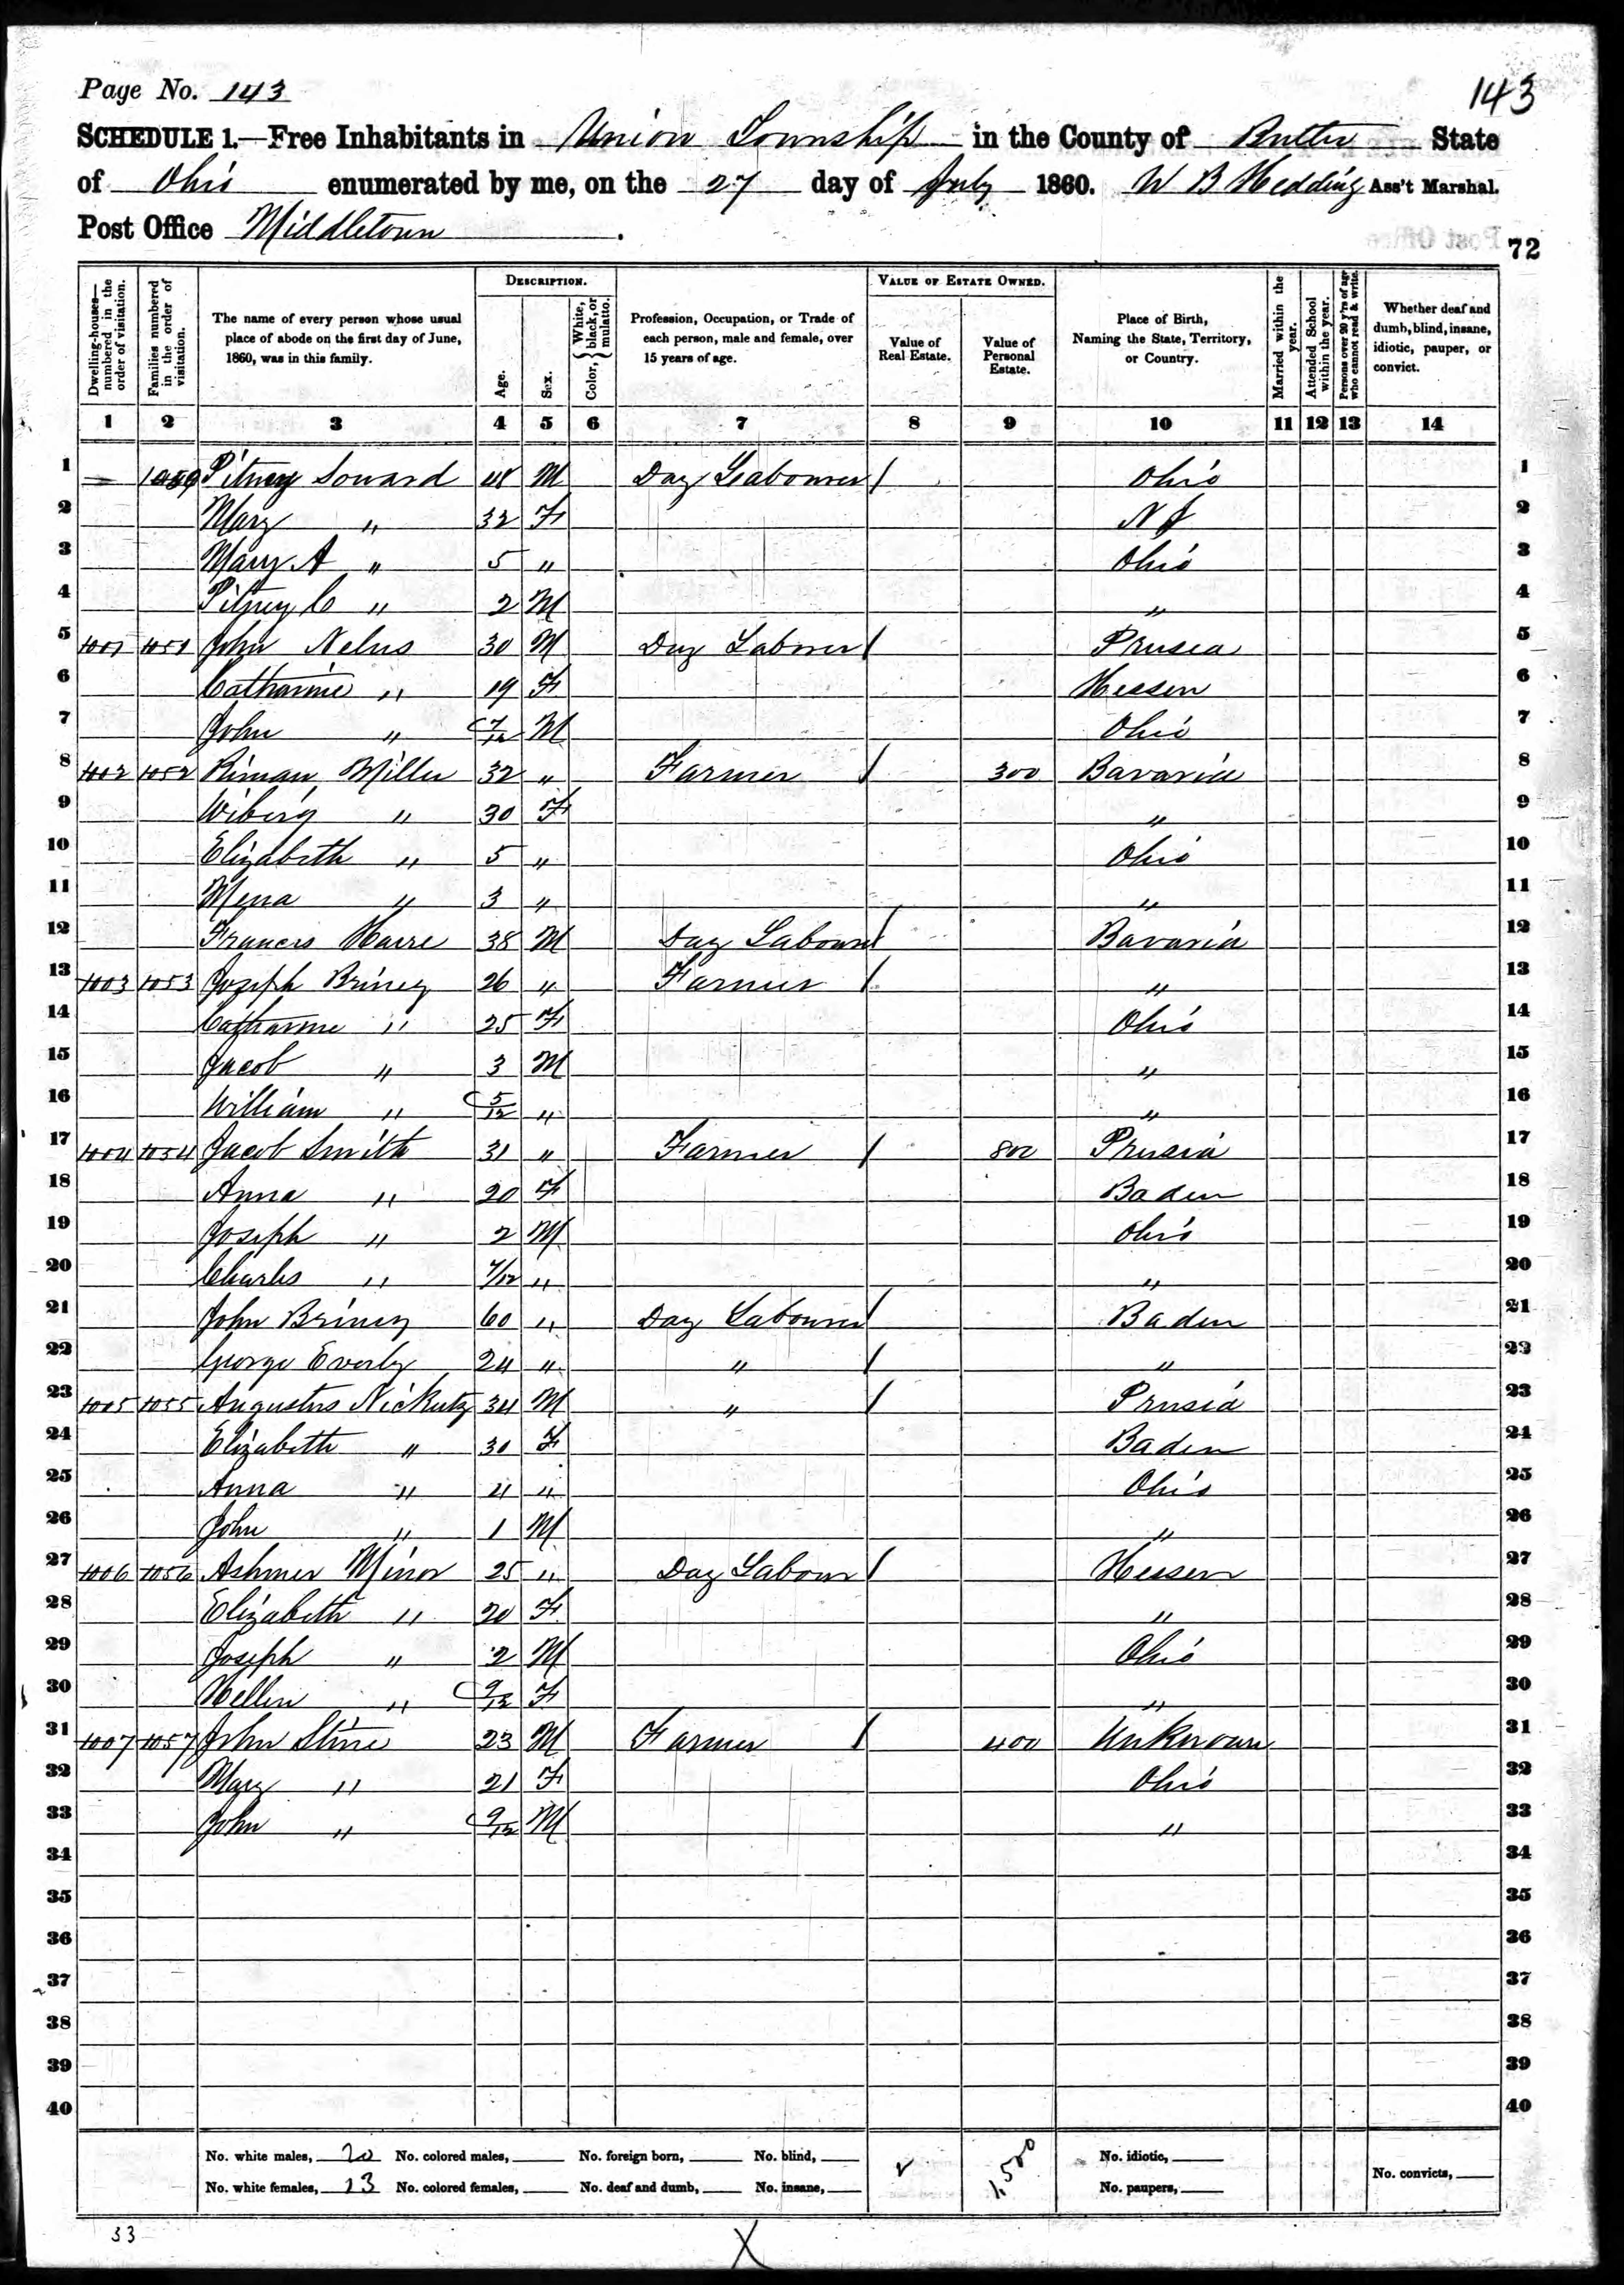 Page No. 143
143
SCHEDULE 1.—Free Inhabitants in Union Township in the County of Butler State
of Ohio enumerated by me, on the 27 day of July 1860. W B Hedding Ass't Marshal.
Post Office Middletown.
72
Dwelling-houses—numbered in the order of visitation.
Families numbered in the order of visitation.
The name of every person whose usual place of abode on the first day of June, 1860, was in this family.
DESCRIPTION.
Age.
Sex.
Color, { White, black, or mulatto.
Profession, Occupation, or Trade of each person, male and female, over 15 years of age.
VALUE OF ESTATE OWNED.
Value of Real Estate.
Value of Personal Estate.
Place of Birth, Naming the State, Territory, or Country.
Married within the year.
Attended School within the year.
Persons over 20 y'rs of age who cannot read & write.
Whether deaf and dumb, blind, insane, idiotic, pauper, or convict.
1 2 3 4 5 6 7 8 9 10 11 12 13 14
1 Pitney Soward 48 M Day Labourer / Ohio 1
2 Mary " 32 F N J 2
3 Mary A " 5 " Ohio 3
4 Pitney C " 2 M " 4
5 1001 1051 John Nelus 30 M Day Laborer / Prusia 5
6 Catharine " 19 F Hessen 6
7 John " 7/12 M Ohio 7
8 1002 1052 Riman Miller 32 " Farmer / 300 Bavaria 8
9 Wiberg " 30 F " 9
10 Elizabeth " 5 " Ohio 10
11 Mena " 3 " " 11
12 Francis Harre 38 M Day Labourer / Bavaria 12
13 1003 1053 Joseph Briney 26 " Farmer / " 13
14 Catharine " 25 F Ohio 14
15 Jacob " 3 M " 15
16 William " 5/12 " " 16
17 1004 1054 Jacob Smith 31 " Farmer / 800 Prusia 17
18 Anna " 20 F Baden 18
19 Joseph " 2 M Ohio 19
20 Charles " 7/12 " " 20
21 John Briney 60 " Day Labourer / Baden 21
22 George Everly 24 " " / " 22
23 1005 1055 Augustus Nickutz 34 M " / Prusia 23
24 Elizabeth " 30 F Baden 24
25 Anna " 4 " Ohio 25
26 John " 1 M " 26
27 1006 1056 Ashmer Minor 25 " Day Labour / Hessen 27
28 Elizabeth " 20 F " 28
29 Joseph " 2 M Ohio 29
30 Hellen " 9/12 F " 30
31 1007 1057 John Stine 23 M Farmer / 400 Unknown 31
32 Mary " 21 F Ohio 32
33 John " 9/12 M " 33
34 34
35 35
36 36
37 37
38 38
39 39
40 40
No. white males, 20 No. colored males, No. foreign born, No. blind, 1,500 No. idiotic,
No. white females, 13 No. colored females, No. deaf and dumb, No. insane, No. paupers, No. convicts,
33
X